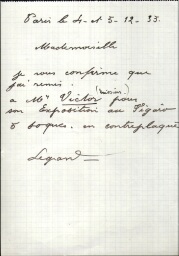 Paris le 4 et 5-12-33.
Mademoiselle
je vous confirme que
j'ai remis
a Mr Victor pour
son Exposition au Figaro
5 toques en contreplaqué
Legrand